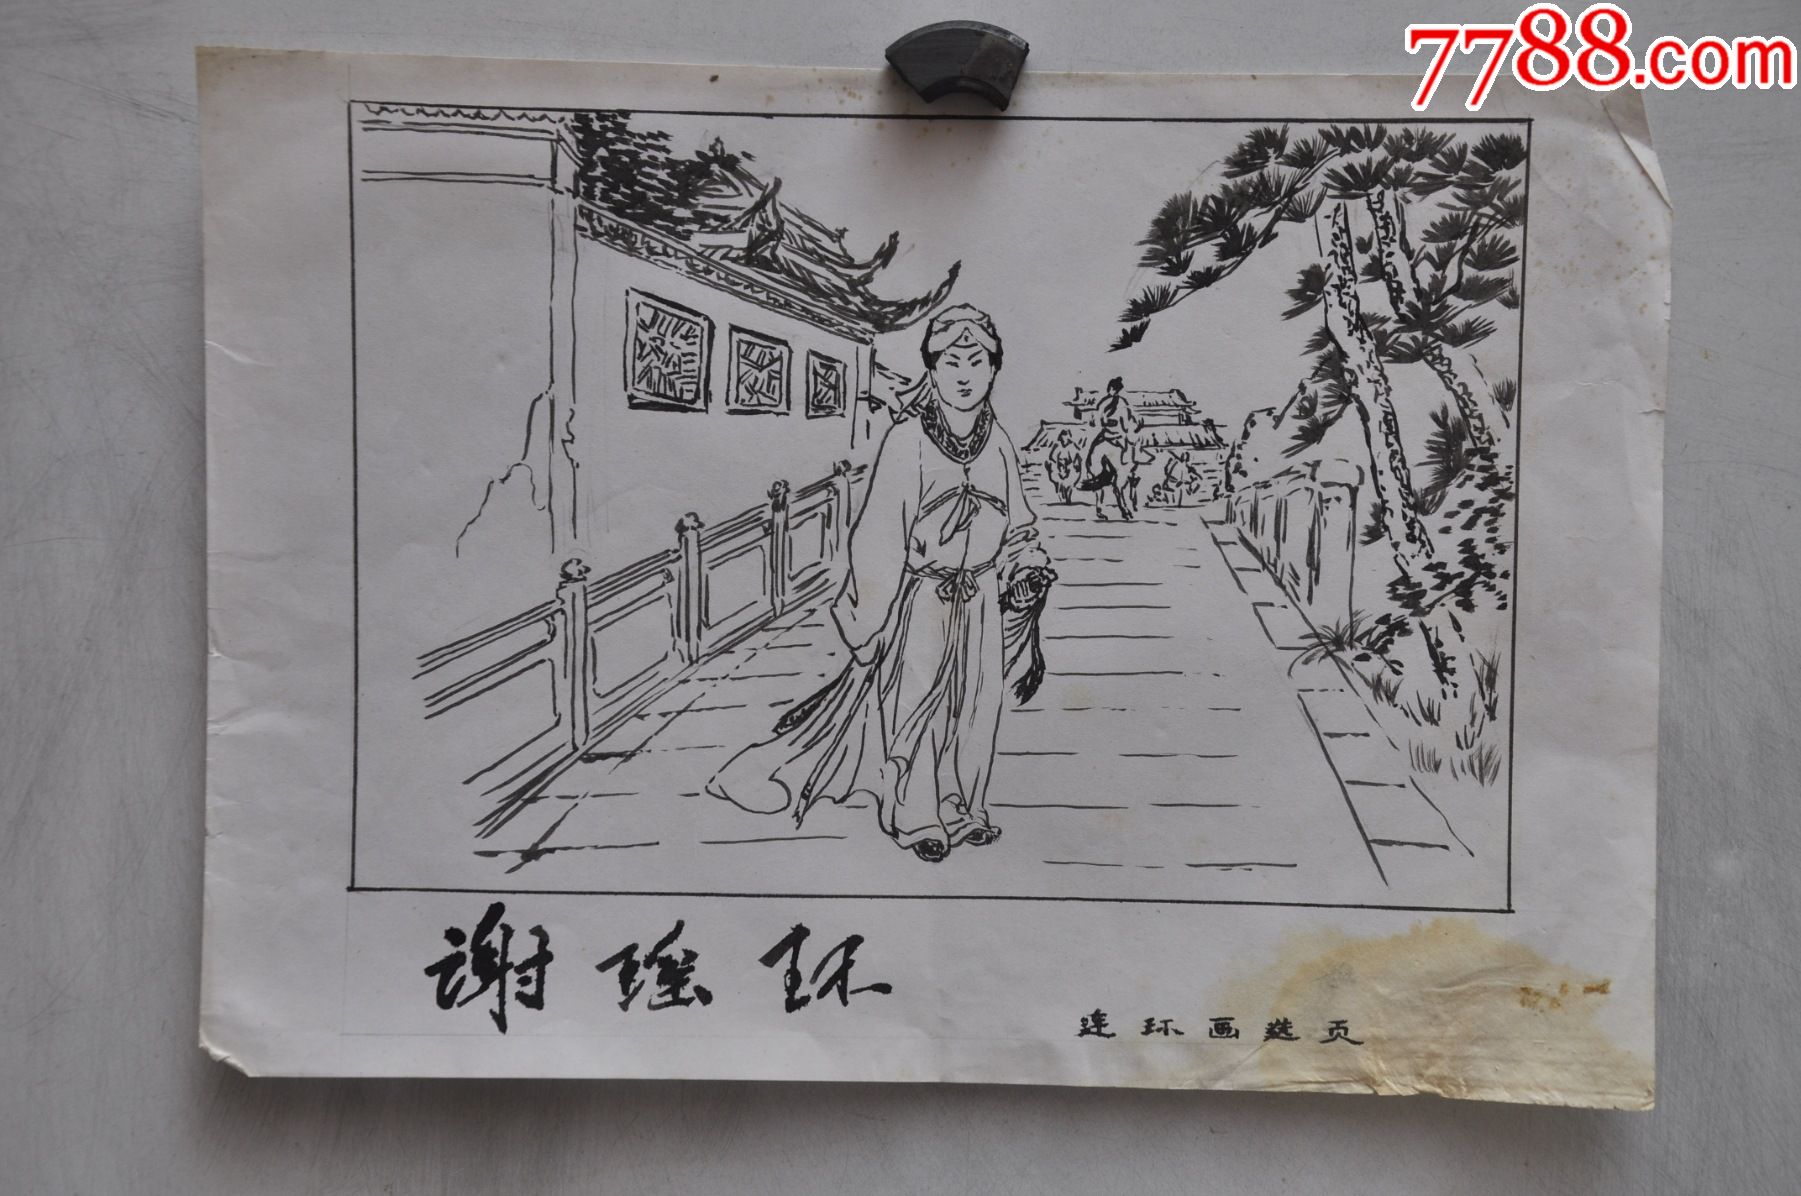 7788.com
谢瑶环
连环画选页